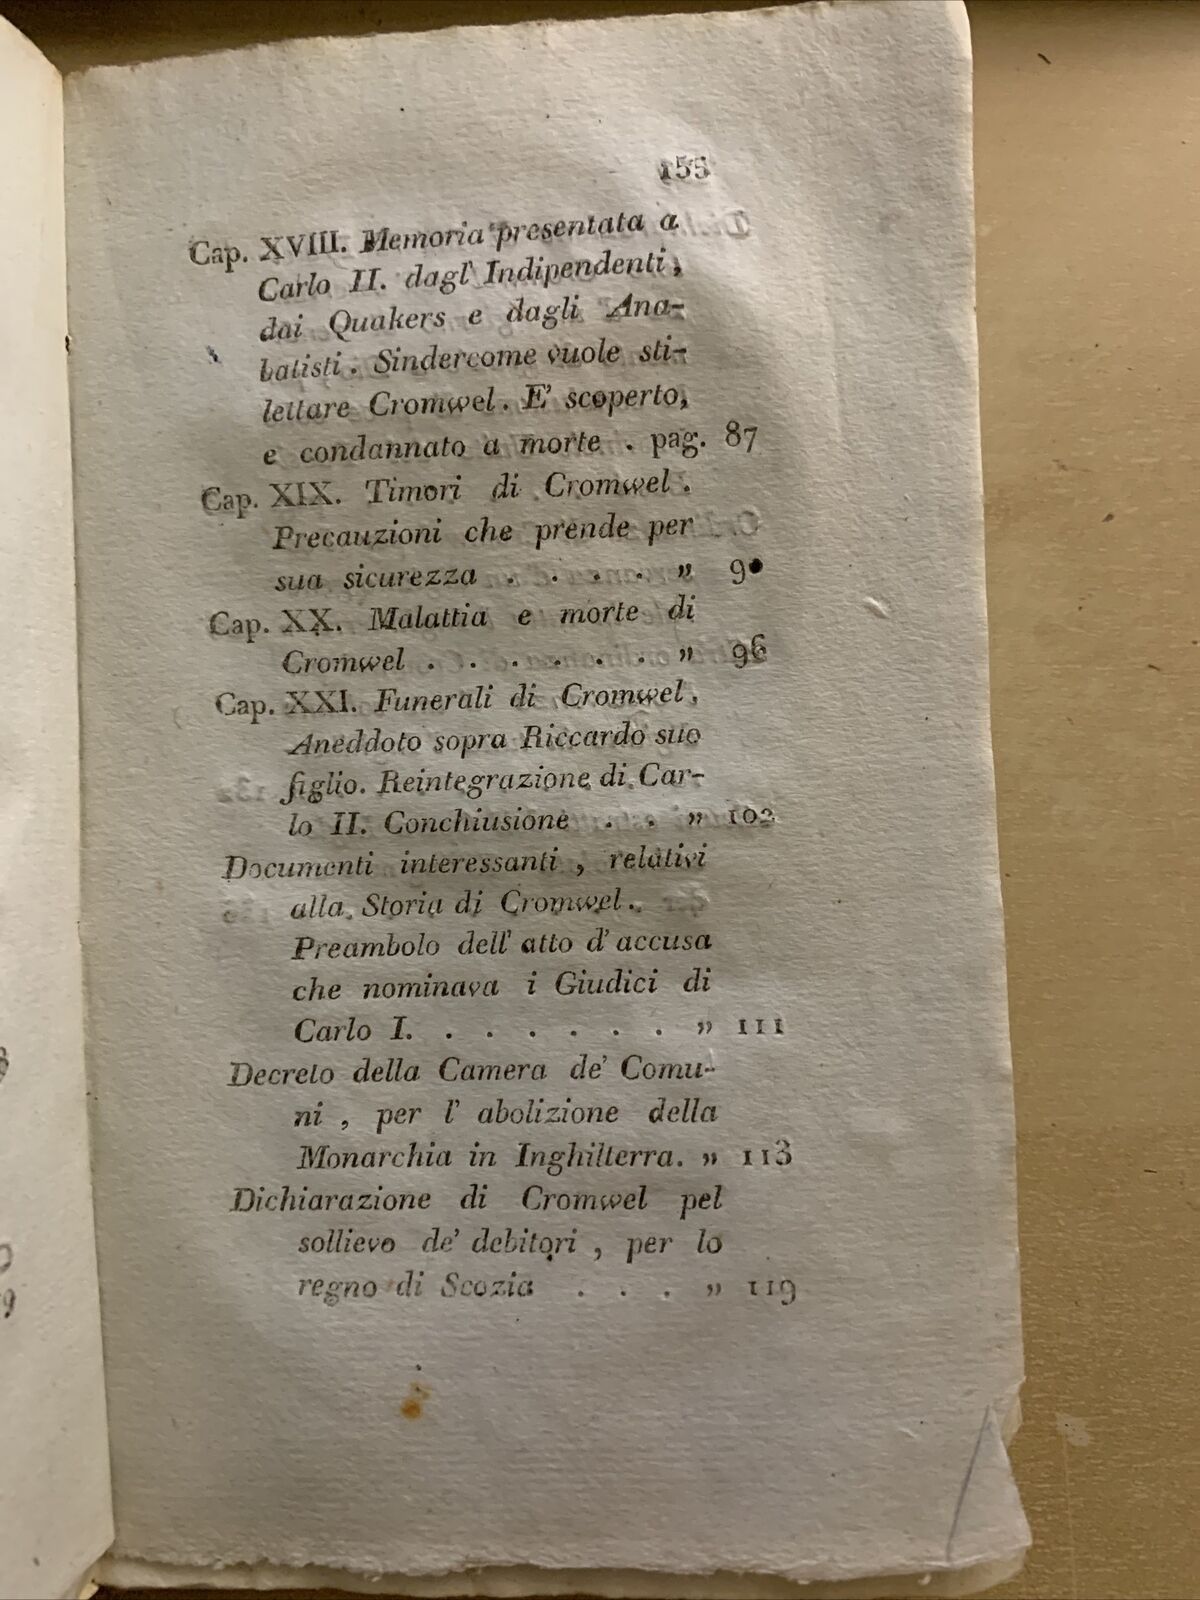 155
Cap. XVIII. Memoria presentata a
Carlo II. dagl' Indipendenti,
dai Quakers e dagli Ana-
batisti. Sindercome vuole sti-
lettare Cromwel. E' scoperto,
e condannato a morte . pag. 87
Cap. XIX. Timori di Cromwel.
Precauzioni che prende per
sua sicurezza . . . . „ 90
Cap. XX. Malattia e morte di
Cromwel . . . . . . „ 96
Cap. XXI. Funerali di Cromwel.
Aneddoto sopra Riccardo suo
figlio. Reintegrazione di Car-
lo II. Conchiusione . . „ 102
Documenti interessanti, relativi
alla Storia di Cromwel.
Preambolo dell' atto d' accusa
che nominava i Giudici di
Carlo I. . . . . . . . „ 111
Decreto della Camera de' Comu-
ni, per l' abolizione della
Monarchia in Inghilterra. „ 113
Dichiarazione di Cromwel pel
sollievo de' debitori, per lo
regno di Scozia . . . „ 119